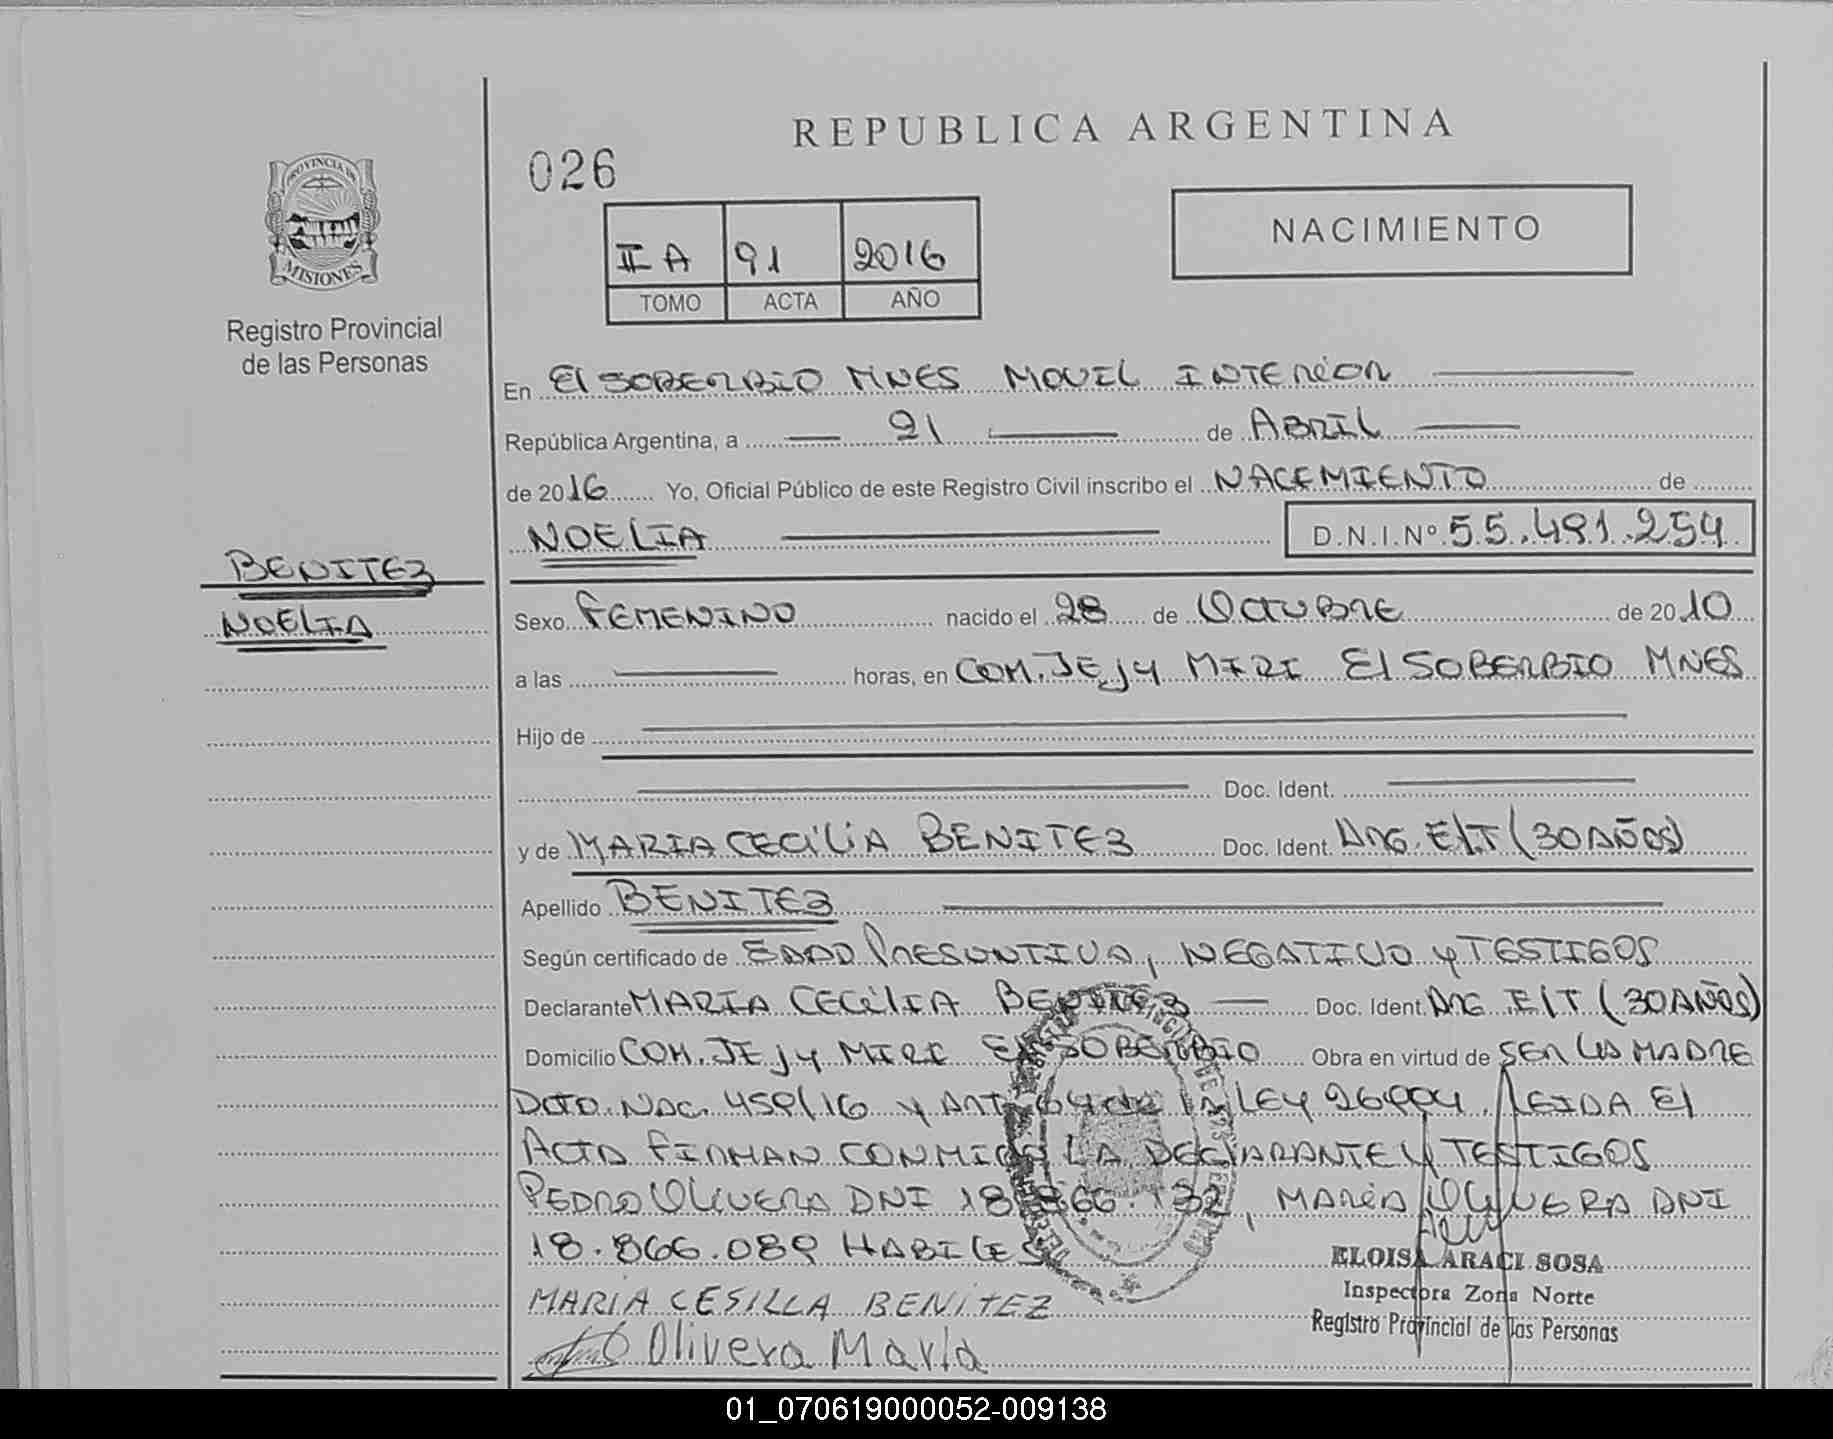 REPUBLICA ARGENTINA
026
NACIMIENTO
PROVINCIA DE
MISIONES
II A 91 2016
TOMO ACTA AÑO
Registro Provincial
de las Personas
En El SOBERBIO MNES MOVIL INTERIOR
República Argentina, a 21 de ABRIL
de 2016 Yo, Oficial Público de este Registro Civil inscribo el NACIMIENTO de
NOELIA D.N.I.Nº 55.491.254
BENITEZ
NOELIA
Sexo FEMENINO nacido el 28 de OCTUBRE de 2010
a las horas, en COM. JEJY MIRI El SOBERBIO MNES
Hijo de
Doc. Ident.
y de MARIA CECILIA BENITEZ Doc. Ident. ARG. E/T (30 AÑOS)
Apellido BENITEZ
Según certificado de EDAD PRESUNTIVA, NEGATIVO y TESTIGOS
Declarante MARIA CECILIA BENITEZ Doc. Ident. ARG E/T (30 AÑOS)
Domicilio COM. JEJY MIRI El SOBERBIO Obra en virtud de SER LA MADRE
DCTO. NAC. 459/16 y ART. de la LEY 26994. LEIDA El
ACTA FIRMAN CONMIGO LA DECLARANTE Y TESTIGOS
PEDRO OLIVERA DNI 18.866.132, MARIA OLIVERA DNI
18.866.089 HABILES
ELOISA ARACI SOSA
Inspectora Zona Norte
Registro Provincial de las Personas
MARIA CESILLA BENITEZ
Olivera Maria
01_070619000052-009138